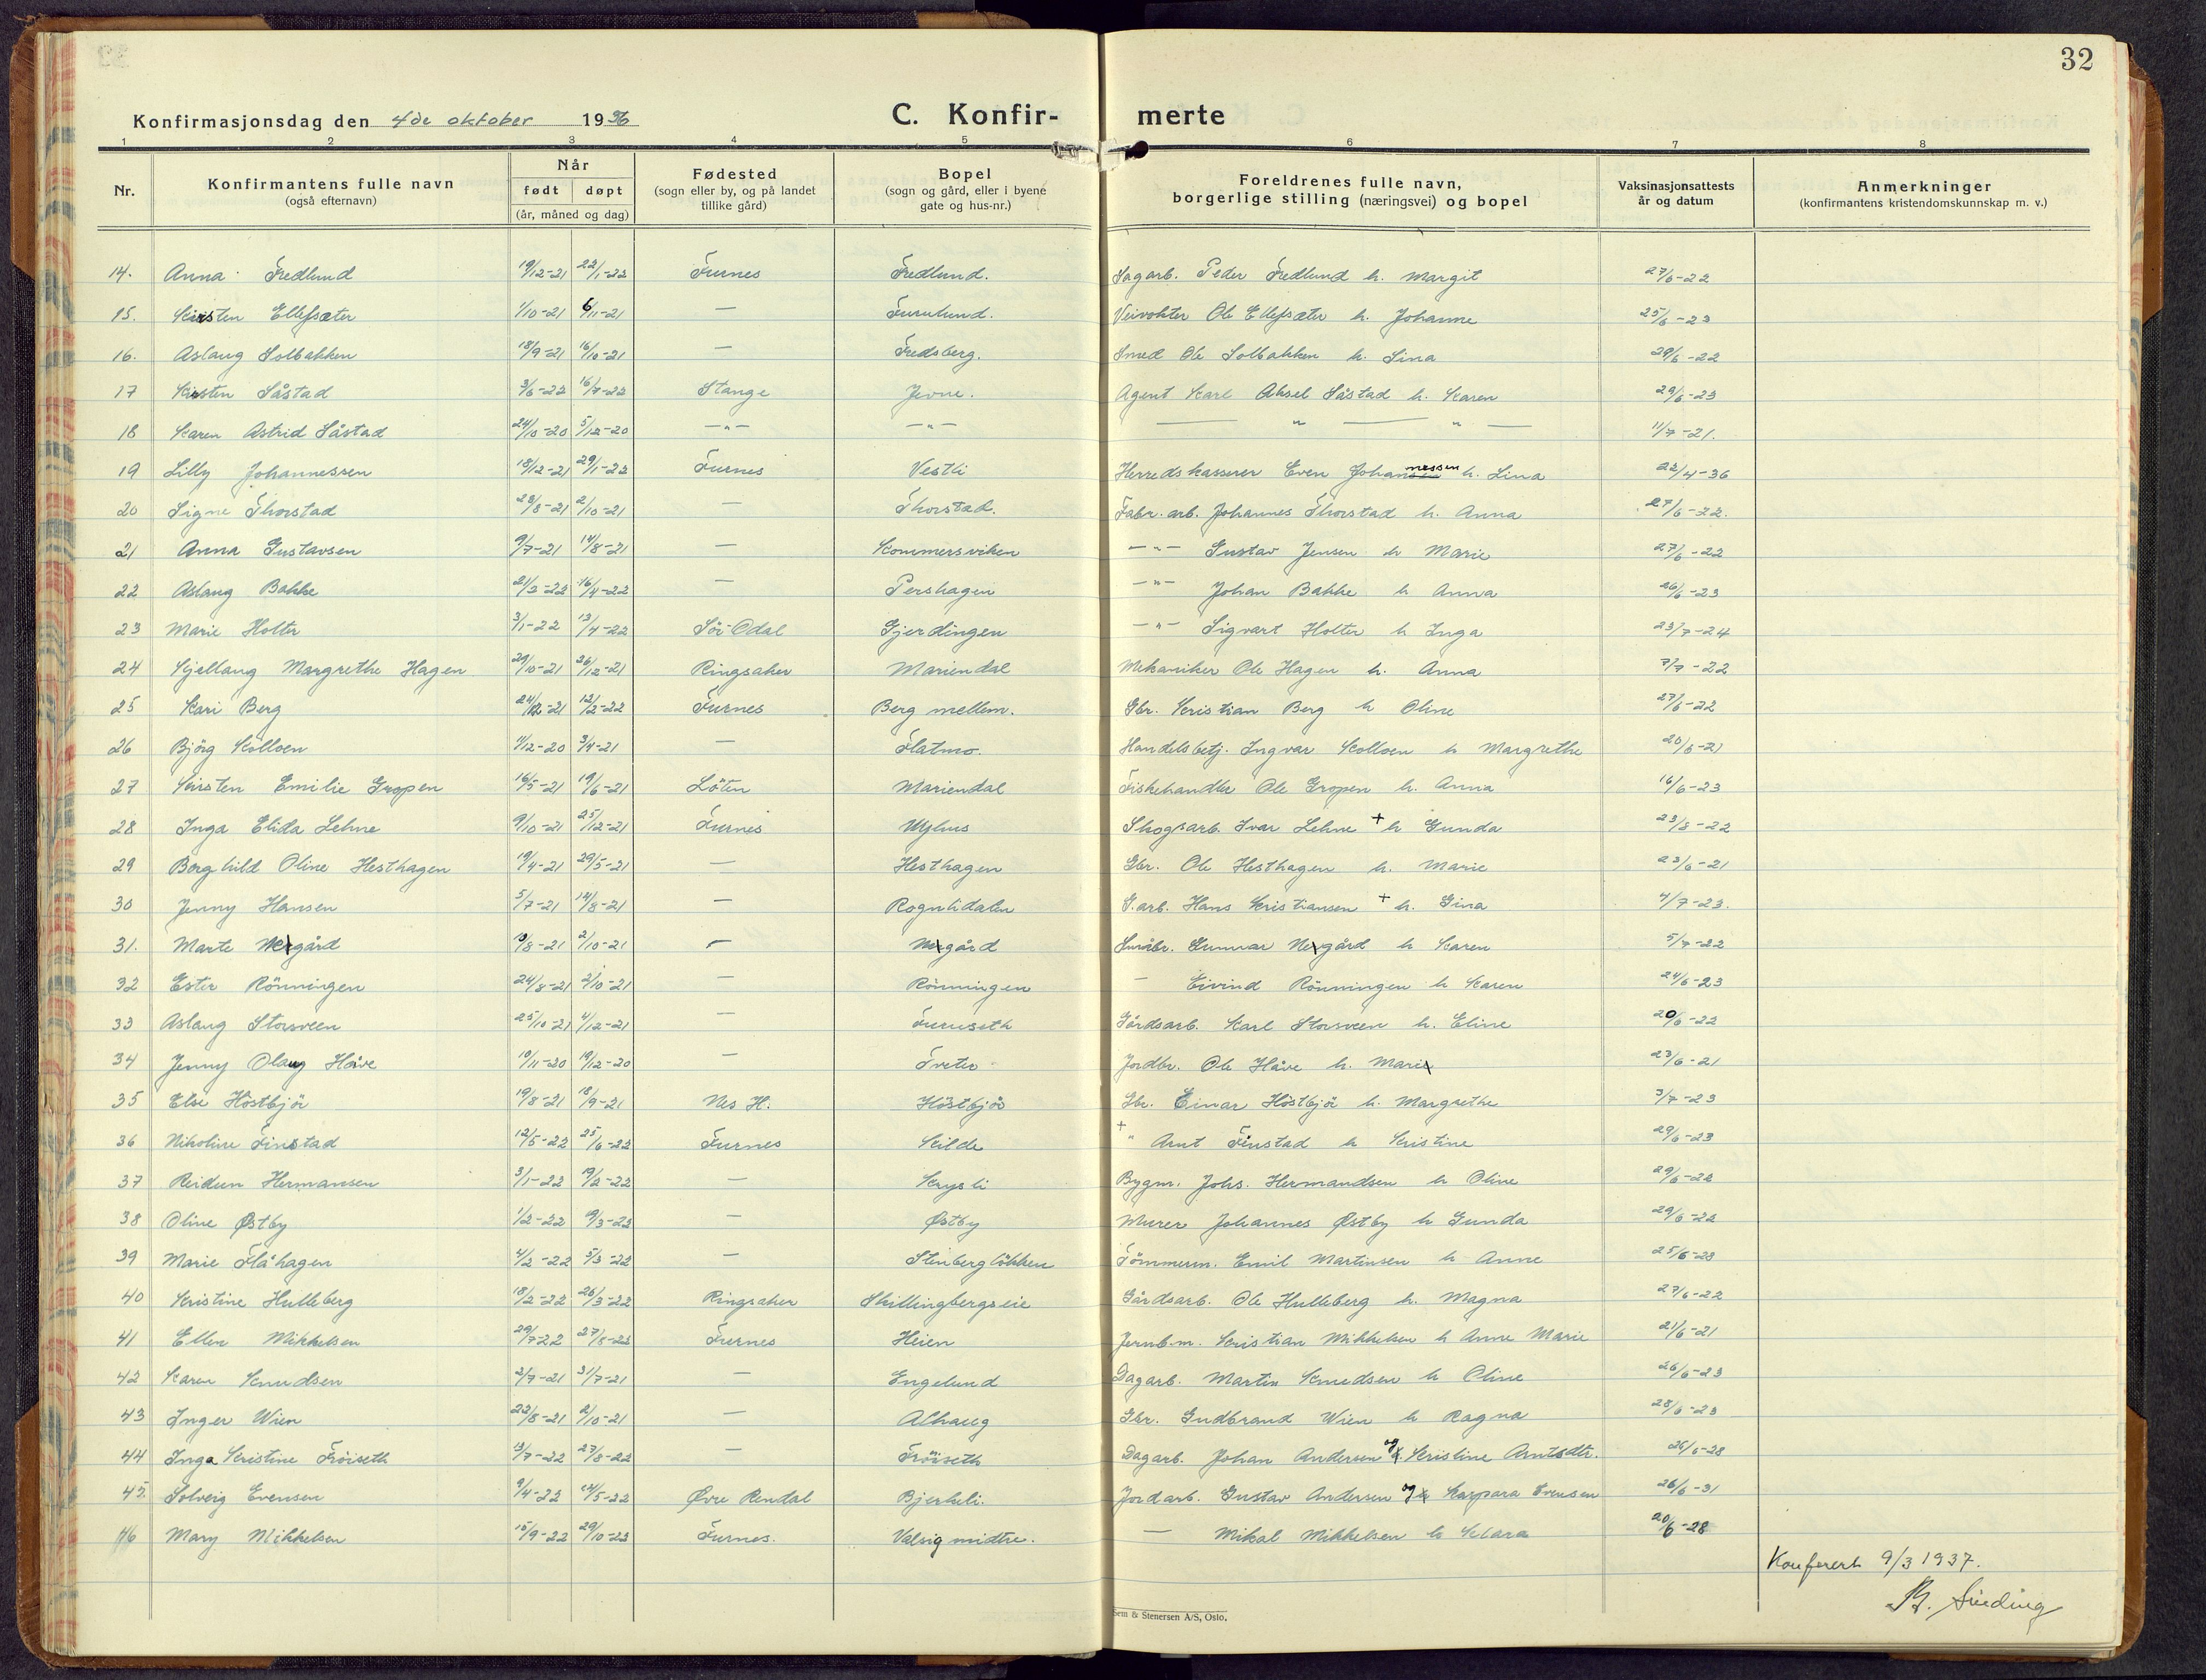 32
Konfirmasjonsdag den 4de oktober 1936 C. Konfir- merte
1 2 3 4 5 6 7 8
Nr. Konfirmantens fulle navn (også efternavn) Når født døpt (år, måned og dag) Fødested (sogn eller by, og på landet tillike gård) Bopel (sogn og gård, eller i byene gate og hus-nr.) Foreldrenes fulle navn, borgerlige stilling (næringsvei) og bopel Vaksinasjonsattests år og datum Anmerkninger (konfirmantens kristendomskunnskap m. v.)
14. Anna Fredlund 19/12-21 22/1-22 Furnes Fredlund. Sagarb. Peder Fredlund h. Margit 27/6-22
15. Kirsten Ellefsæter 1/10-21 6/11-21 — Furulund. Veivokter Ole Ellefsæter h. Johanne 25/6-23
16. Aslaug Solbakken 18/9-21 16/10-21 — Fredsberg. Smed Ole Solbakken h. Lina 29/6-22
17 Kirsten Såstad 3/6-22 16/7-22 Stange Jevne. Agent Karl Aksel Såstad h. Karen 29/6-23
18 Karen Astrid Såstad 24/10-20 5/12-20 —"— —"— — " — " — 11/7-21.
19 Lilly Johannessen 18/12-21 29/1-22 Furnes Vestli Herredskasserer Even Johannessen h. Lina 22/4-36
20 Signe Thorstad 23/8-21 2/10-21 — Thorstad. Fabr. arb. Johannes Thorstad h. Anna 27/6-22.
21 Anna Gustavsen 9/7-21 14/8-21 — Kommersviken —"— Gustav Jensen h Marie 27/6-22
22 Aslaug Bakke 21/2-22 16/4-22 — Pershagen —"— Johan Bakke h Anna 26/6-23
23 Marie Holter 3/1-22 13/4-22 Sör-Odal Gjerdingen —"— Sigvart Holter h Inga 23/7-24
24 Kjellaug Margrethe Hagen 29/10-21 26/12-21 Ringsaker Mariendal Mekaniker Ole Hagen h. Anna 7/7-22
25 Kari Berg 24/12-21 12/2-22 Furnes Berg mellem. Gbr. Kristian Berg h Oline 27/6-22
26 Björg Kolloen 11/12-20 3/4-21 — Flatmo. Handelsbetj. Ingvar Kolloen h Margrethe 20/6-21
27 Kirsten Emilie Gropen 16/5-21 19/6-21 Löten Mariendal Fiskehandler Ole Gropen h. Anna 16/6-23
28 Inga Elida Lehne 9/10-21 25/12-21 Furnes Myhus Skogsarb. Ivar Lehne + h Gunda 23/8-22
29 Borghild Oline Hesthagen 19/4-21 29/5-21 — Hesthagen Gbr. Ole Hesthagen h. Marie 23/6-21
30 Jenny Hansen 5/7-21 14/8-21 — Rognlidalen G.arb. Hans Kristiansen + h. Gina 4/7-23.
31. Marte Nergård 13/8-21 2/10-21 — Nergård Småbr. Gunnar Nergård h Karen 5/7-22
32 Ester Rönningen 24/8-21 2/10-21 — Rönningen — Eivind Rönningen h Karen 24/6-23
33 Aslaug Storsveen 25/10-21 4/12-21 — Furuseth Gårdsarb. Karl Storsveen h. Eline 20/6-22
34 Jenny Olaug Håve 10/11-20 19/12-20 — Treter Jordbr. Ole Håve h. Mari 23/6-21
35 Else Höstbjör 19/8-21 18/9-21 Nes H. Höstbjör Gbr. Einar Höstbjör h. Margrethe 3/7-23
36 Nikoline Finstad 12/5-22 25/6-22 Furnes Kilde + " Arnt Finstad h Kristine 29/6-23
37 Reidun Hermansen 3/1-22 19/2-22 — Krysli Bygm. Johs. Hermandsen h Oline 29/6-22
38 Oline Østby 1/2-22 19/3-22 — Østby Murer Johannes Østby h Gunda 29/6-22
39 Marie Flåhagen 4/2-22 5/3-22 — Stenbergløkken Tömmerm. Emil Martinsen h Anne 25/6-23
40 Kristine Hulleberg 18/2-22 26/3-22 Ringsaker Skillingbergseie Gårdsarb. Ole Hulleberg h. Magna 27/6-22
41 Ellen Mikkelsen 29/7-22 27/8-22 Furnes Heien Jernb.m. Kristian Mikkelsen h Anne Marie 21/6-21
42 Karen Knudsen 2/7-21 31/7-21 — Engelund Dagarb. Martin Knudsen h Oline 26/6-23
43 Inger Wien 22/8-21 2/10-21 — Alhaug Gbr. Gudbrand Wien h Ragna 28/6-23
44 Inga Kristine Fröiseth 13/7-22 27/8-22 — Fröiseth Dagarb. Johan Andersen og Kristine Arntsdtr. 25/6-28
45. Solveig Evensen 9/4-22 14/5-22 Øvre Rendal Bjerkeli. Jordarb. Gustav Andersen og Kaspara Evensen 26/6-31
46 Mary Mikkelsen 15/9-22 29/10-22 Furnes. Valsig midtre. — Mikal Mikkelsen h Klara 20/6-28
Konferert 9/3 1937.
Sinding
Sem & Stenersen A/S, Oslo.